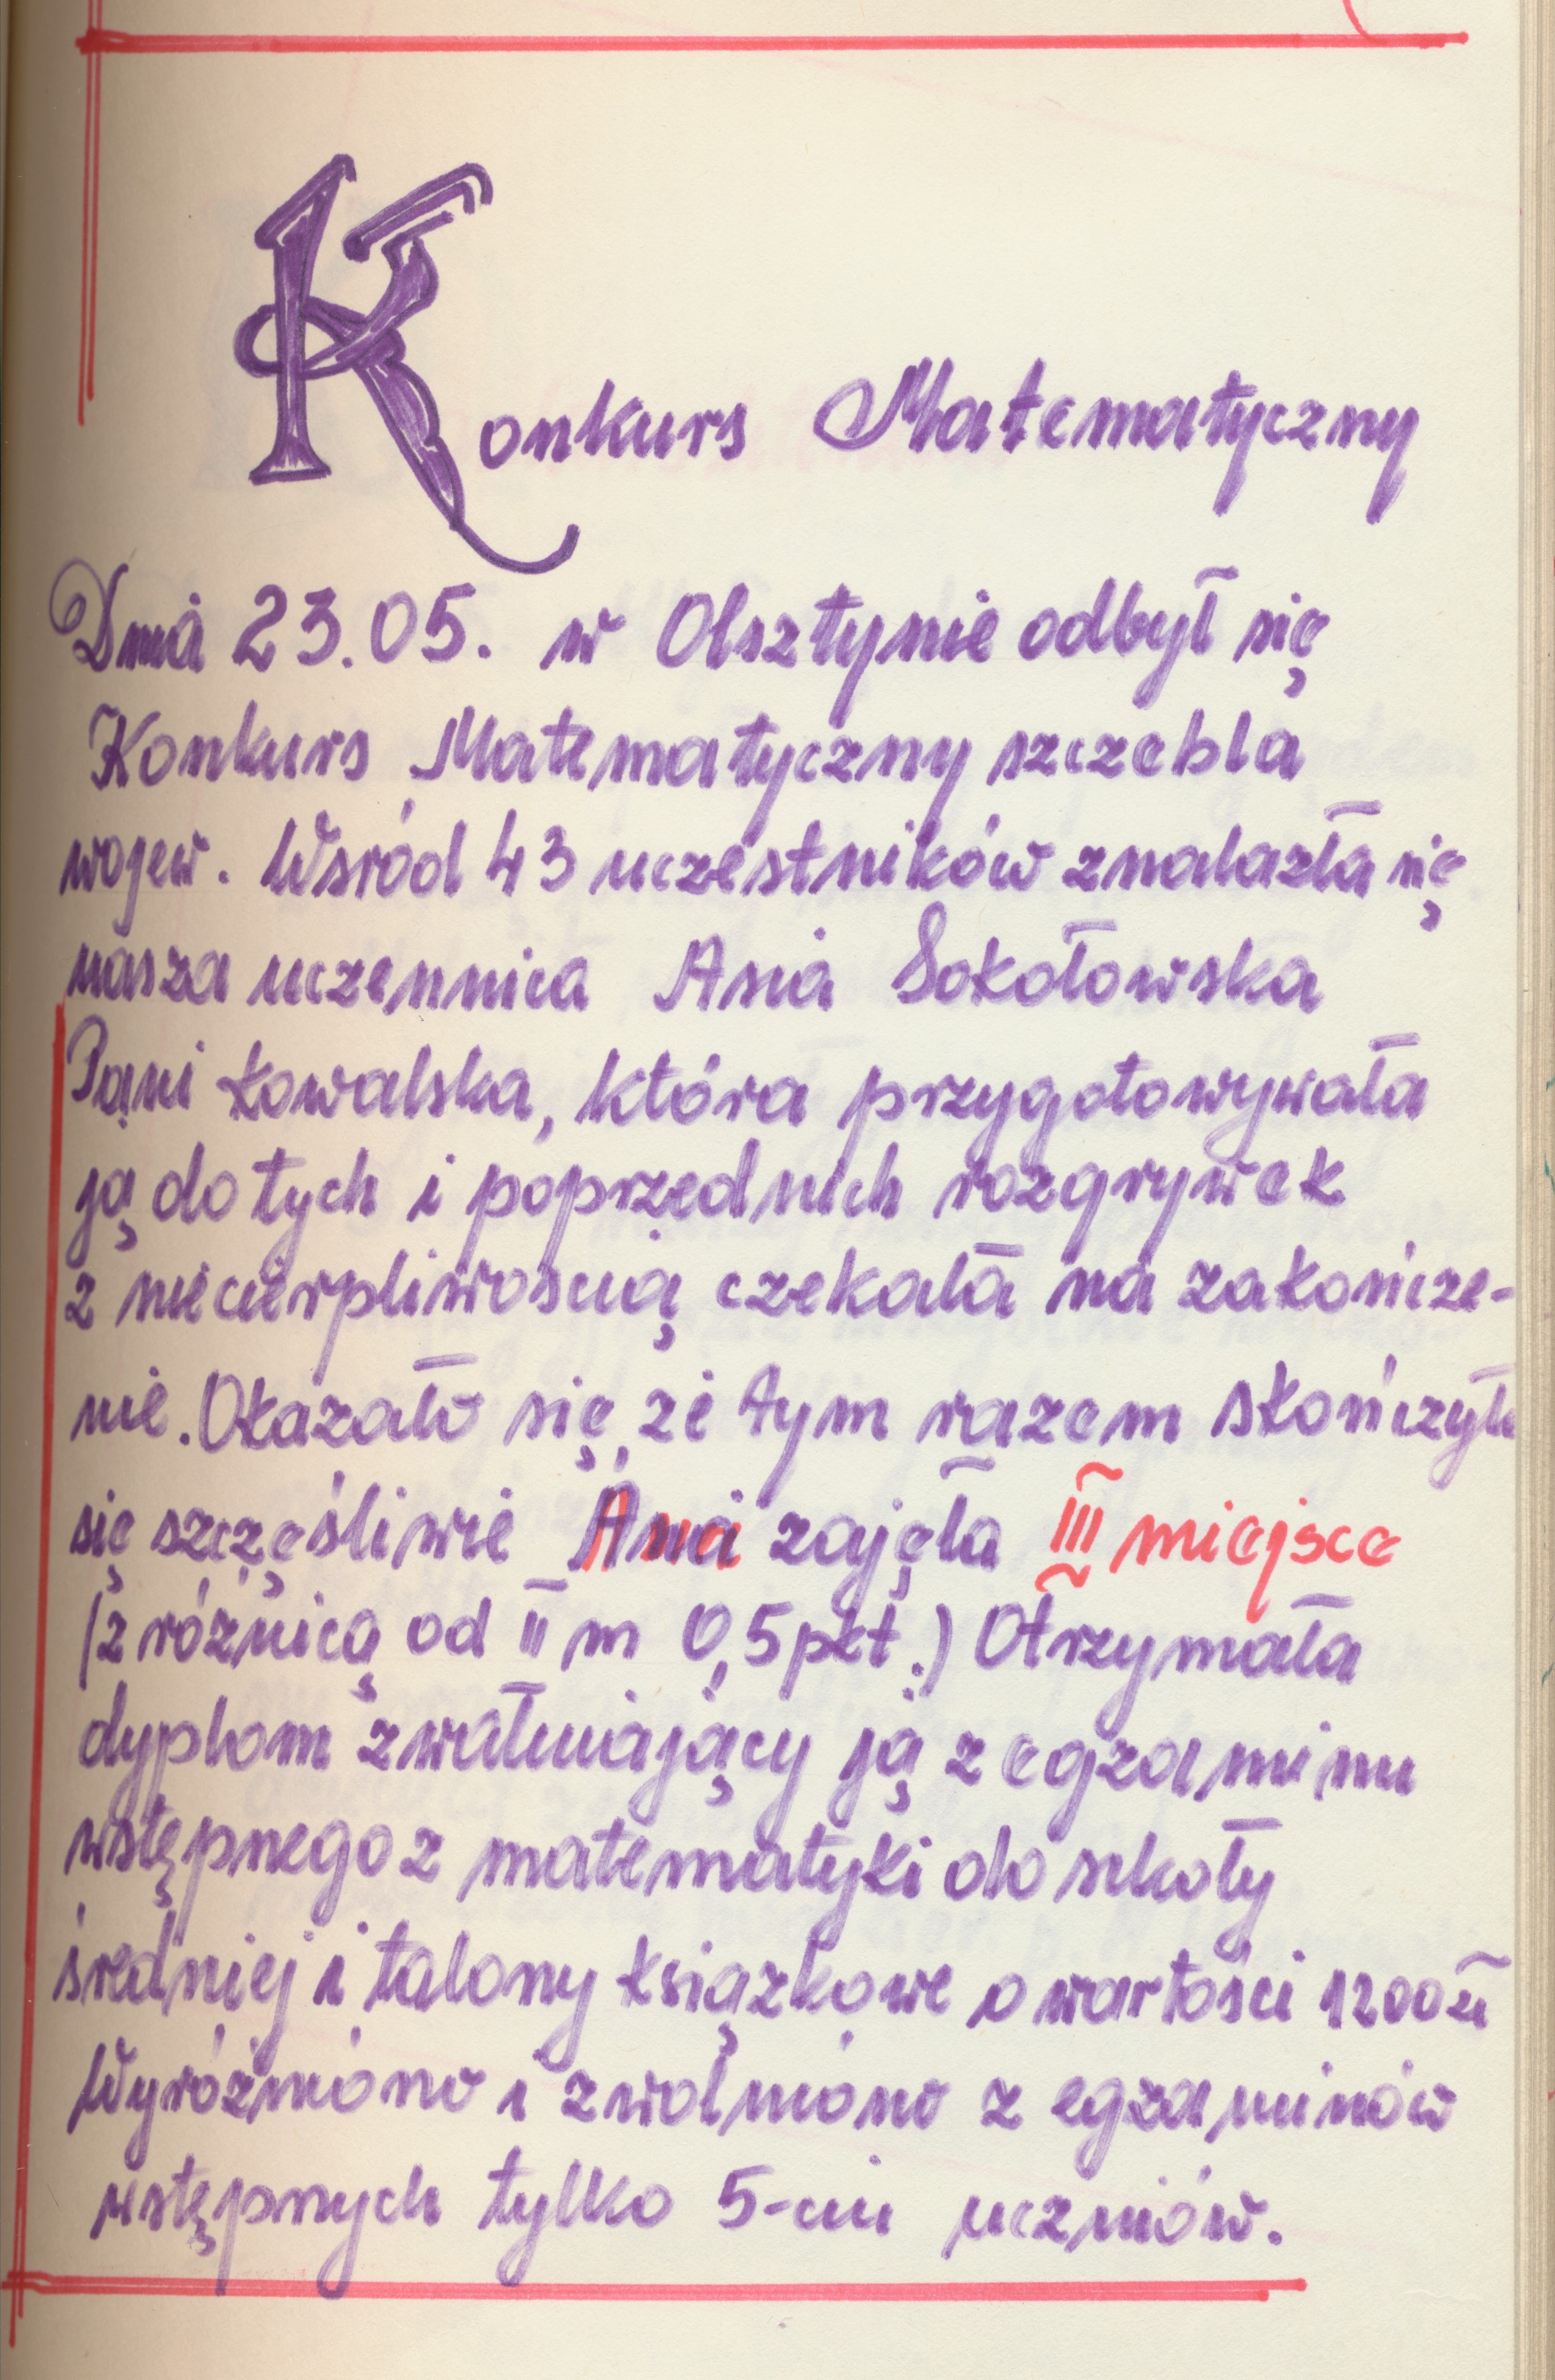 Konkurs Matematyczny
Dnia 23.05. w Olsztynie odbył się
Konkurs Matematyczny szczebla
wojew. Wśród 43 uczestników znalazła się
nasza uczennica Ania Sokołowska
Pani Kowalska, która przygotowywała
ją do tych i poprzednich rozgrywek
z niecierpliwością czekała na zakończe-
nie. Okazało się, że tym razem skończyło
się szczęśliwie Ania zajęła III miejsce
(z różnicą od II m 0,5 pkt.) Otrzymała
dyplom zwalniający ją z egzaminu
wstępnego z matematyki do szkoły
średniej i talony książkowe o wartości 1200 zł
Wyróżniono i zwolniono z egzaminów
wstępnych tylko 5-ciu uczniów.